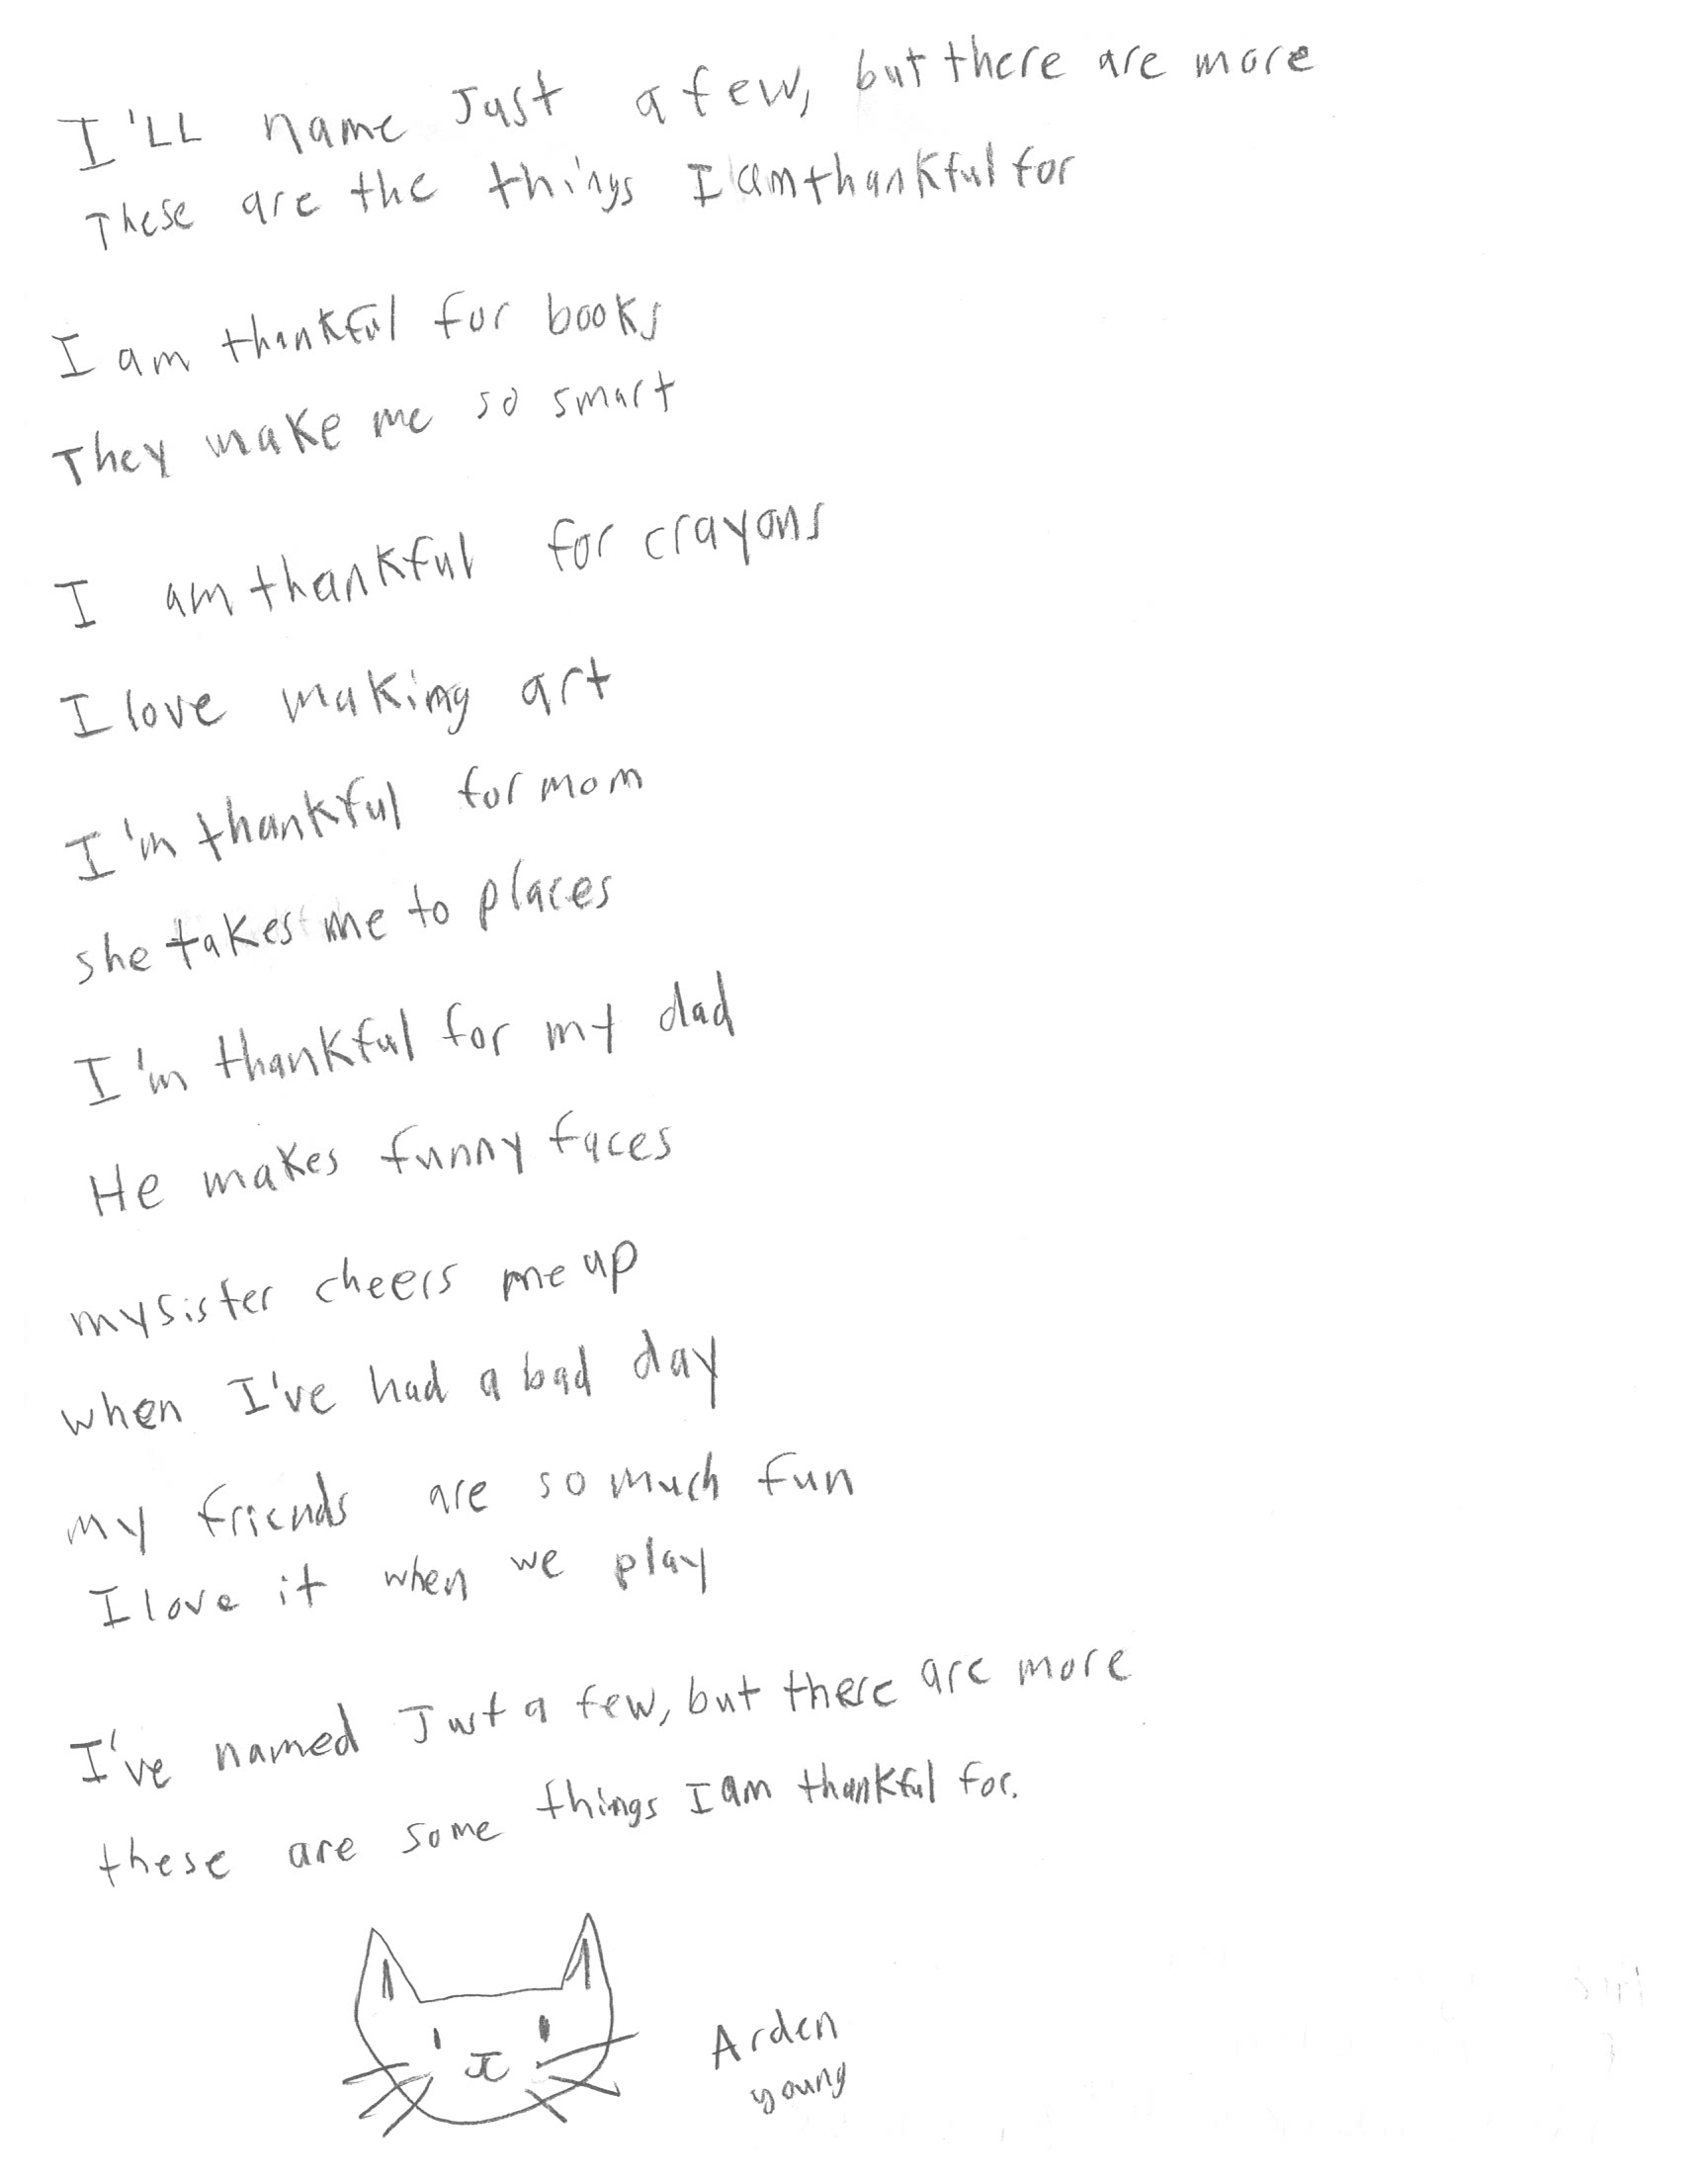 I'LL name Just a few, but there are more
These are the things I am thankful for
I am thankful for books
They make me so smart
I am thankful for crayons
I love making art
I'm thankful for mom
she takes me to places
I'm thankful for my dad
He makes funny faces
my sister cheers me up
when I've had a bad day
my friends are so much fun
I love it when we play
I've named Just a few, but there are more
these are some things I am thankful for.
Arden
young